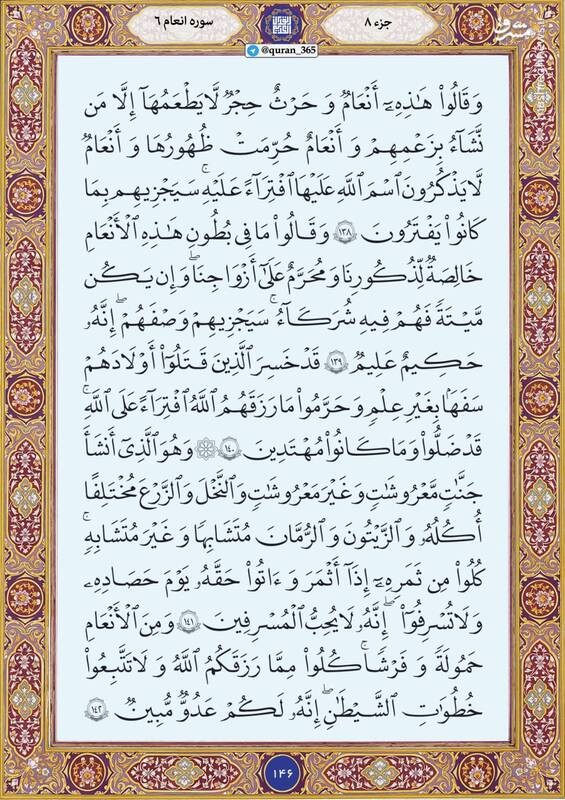 جزء ۸
سوره انعام ۶
@quran_365
مشرق
mashreghnews.ir
وَقَالُواْ هَٰذِهِۦٓ أَنْعَٰمٌ وَ حَرْثٌ حِجْرٌ لَّا يَطْعَمُهَآ إِلَّا مَن
نَّشَآءُ بِزَعْمِهِمْ وَ أَنْعَٰمٌ حُرِّمَتْ ظُهُورُهَا وَ أَنْعَٰمٌ
لَّا يَذْكُرُونَ ٱسْمَ ٱللَّهِ عَلَيْهَا ٱفْتِرَآءً عَلَيْهِۚ سَيَجْزِيهِم بِمَا
كَانُواْ يَفْتَرُونَ ۱۳۸ وَقَالُواْ مَا فِى بُطُونِ هَٰذِهِ ٱلْأَنْعَٰمِ
خَالِصَةٌ لِّذُكُورِنَا وَ مُحَرَّمٌ عَلَىٰٓ أَزْوَٰجِنَاۖ وَ إِن يَكُن
مَّيْتَةً فَهُمْ فِيهِ شُرَكَآءُۚ سَيَجْزِيهِمْ وَصْفَهُمْۖ إِنَّهُۥ
حَكِيمٌ عَلِيمٌ ۱۳۹ قَدْ خَسِرَ ٱلَّذِينَ قَتَلُوٓاْ أَوْلَٰدَهُمْ
سَفَهَۢا بِغَيْرِ عِلْمٍ وَ حَرَّمُواْ مَا رَزَقَهُمُ ٱللَّهُ ٱفْتِرَآءً عَلَى ٱللَّهِۚ
قَدْ ضَلُّواْ وَ مَا كَانُواْ مُهْتَدِينَ ۱۴۰ ۞ وَهُوَ ٱلَّذِىٓ أَنشَأَ
جَنَّٰتٍ مَّعْرُوشَٰتٍ وَ غَيْرَ مَعْرُوشَٰتٍ وَ ٱلنَّخْلَ وَ ٱلزَّرْعَ مُخْتَلِفًا
أُكُلُهُۥ وَ ٱلزَّيْتُونَ وَ ٱلرُّمَّانَ مُتَشَٰبِهًا وَ غَيْرَ مُتَشَٰبِهٍۚ
كُلُواْ مِن ثَمَرِهِۦٓ إِذَآ أَثْمَرَ وَ ءَاتُواْ حَقَّهُۥ يَوْمَ حَصَادِهِۦۖ
وَ لَا تُسْرِفُوٓاْۚ إِنَّهُۥ لَا يُحِبُّ ٱلْمُسْرِفِينَ ۱۴۱ وَمِنَ ٱلْأَنْعَٰمِ
حَمُولَةً وَ فَرْشًاۚ كُلُواْ مِمَّا رَزَقَكُمُ ٱللَّهُ وَ لَا تَتَّبِعُواْ
خُطُوَٰتِ ٱلشَّيْطَٰنِۚ إِنَّهُۥ لَكُمْ عَدُوٌّ مُّبِينٌ ۱۴۲
۱۴۶